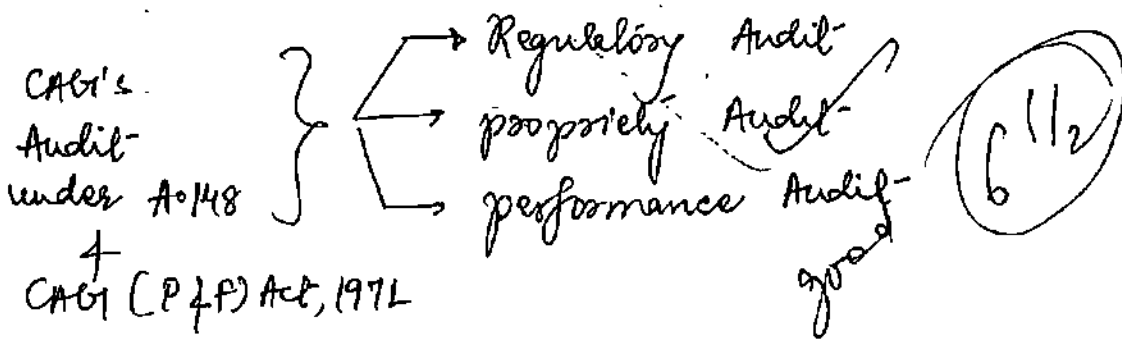 CAG's
Audit
under A°148
+
CAG (P&P) Act, 1971
Regulatory Audit
propriety Audit
performance Audit
good
6 1/2